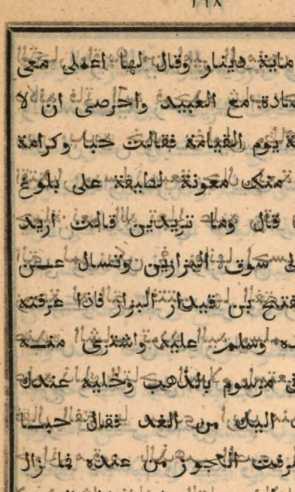 ٢١٨
ماية دينار وقال لها اعملى معى
مع العبيد واحرصى ان لا
يوم القيامة فقالت حبا وكرامة
منك معونة لطيفة على بلوغ
قال وما تريدين قالت اريد
سوق البزازين وتسال عن
فتح بن قيدار البزاز فاذا عرفته
وسلم عليه واشترى منه
مرسوم بالذهب وخليه عندك
اليك من الغد فقال حبا
العجوز من عنده فما زال